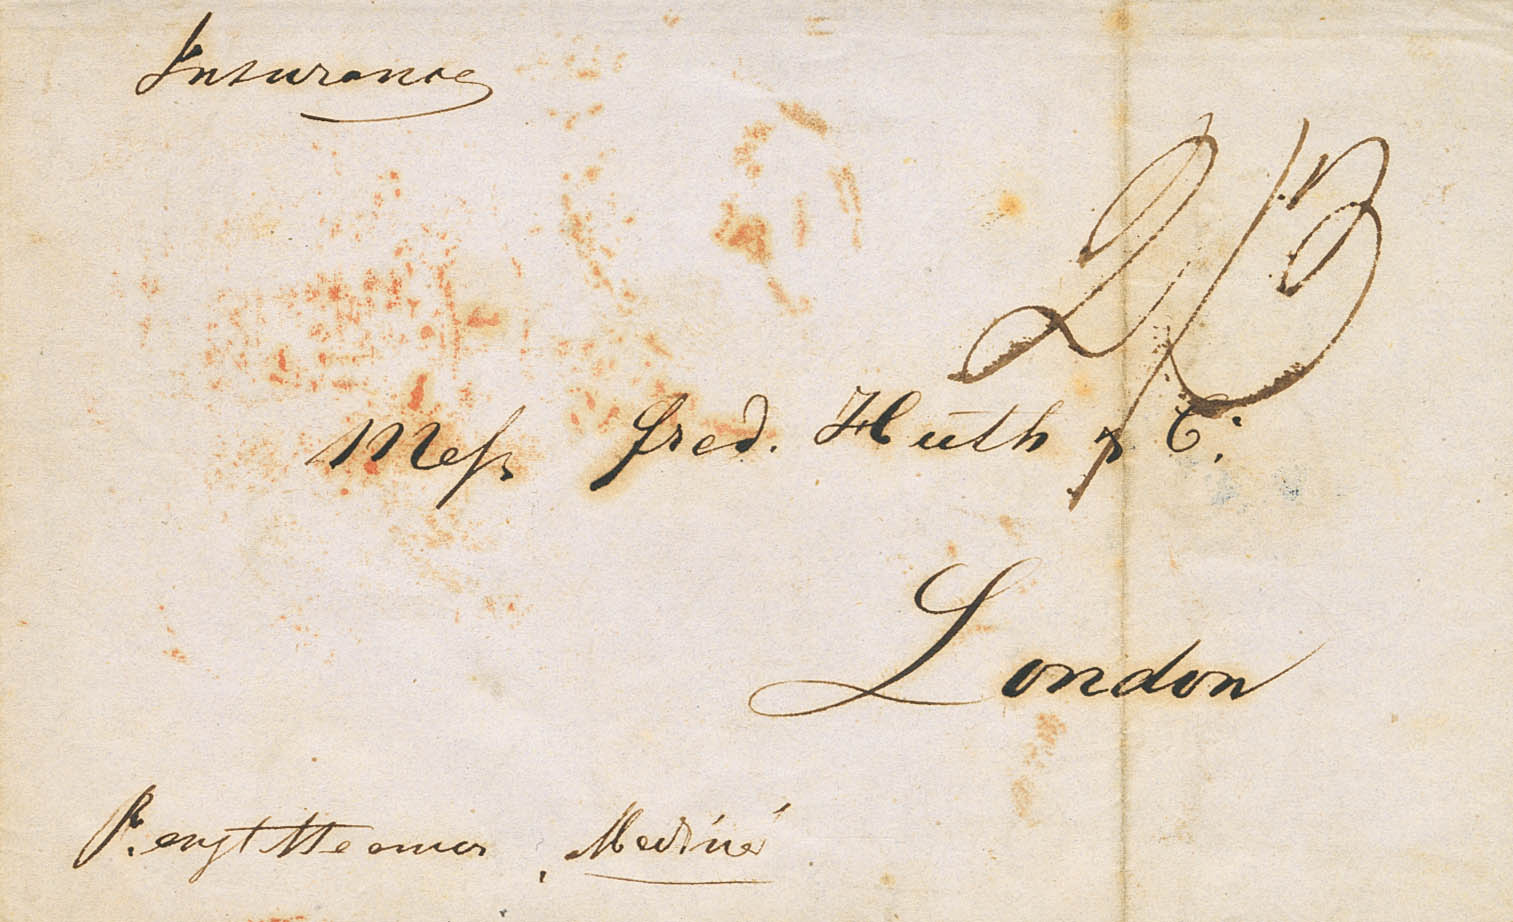 Insurance
2/3
Mess fred. Huth & Co:
London
P. engl Steamer, Medina